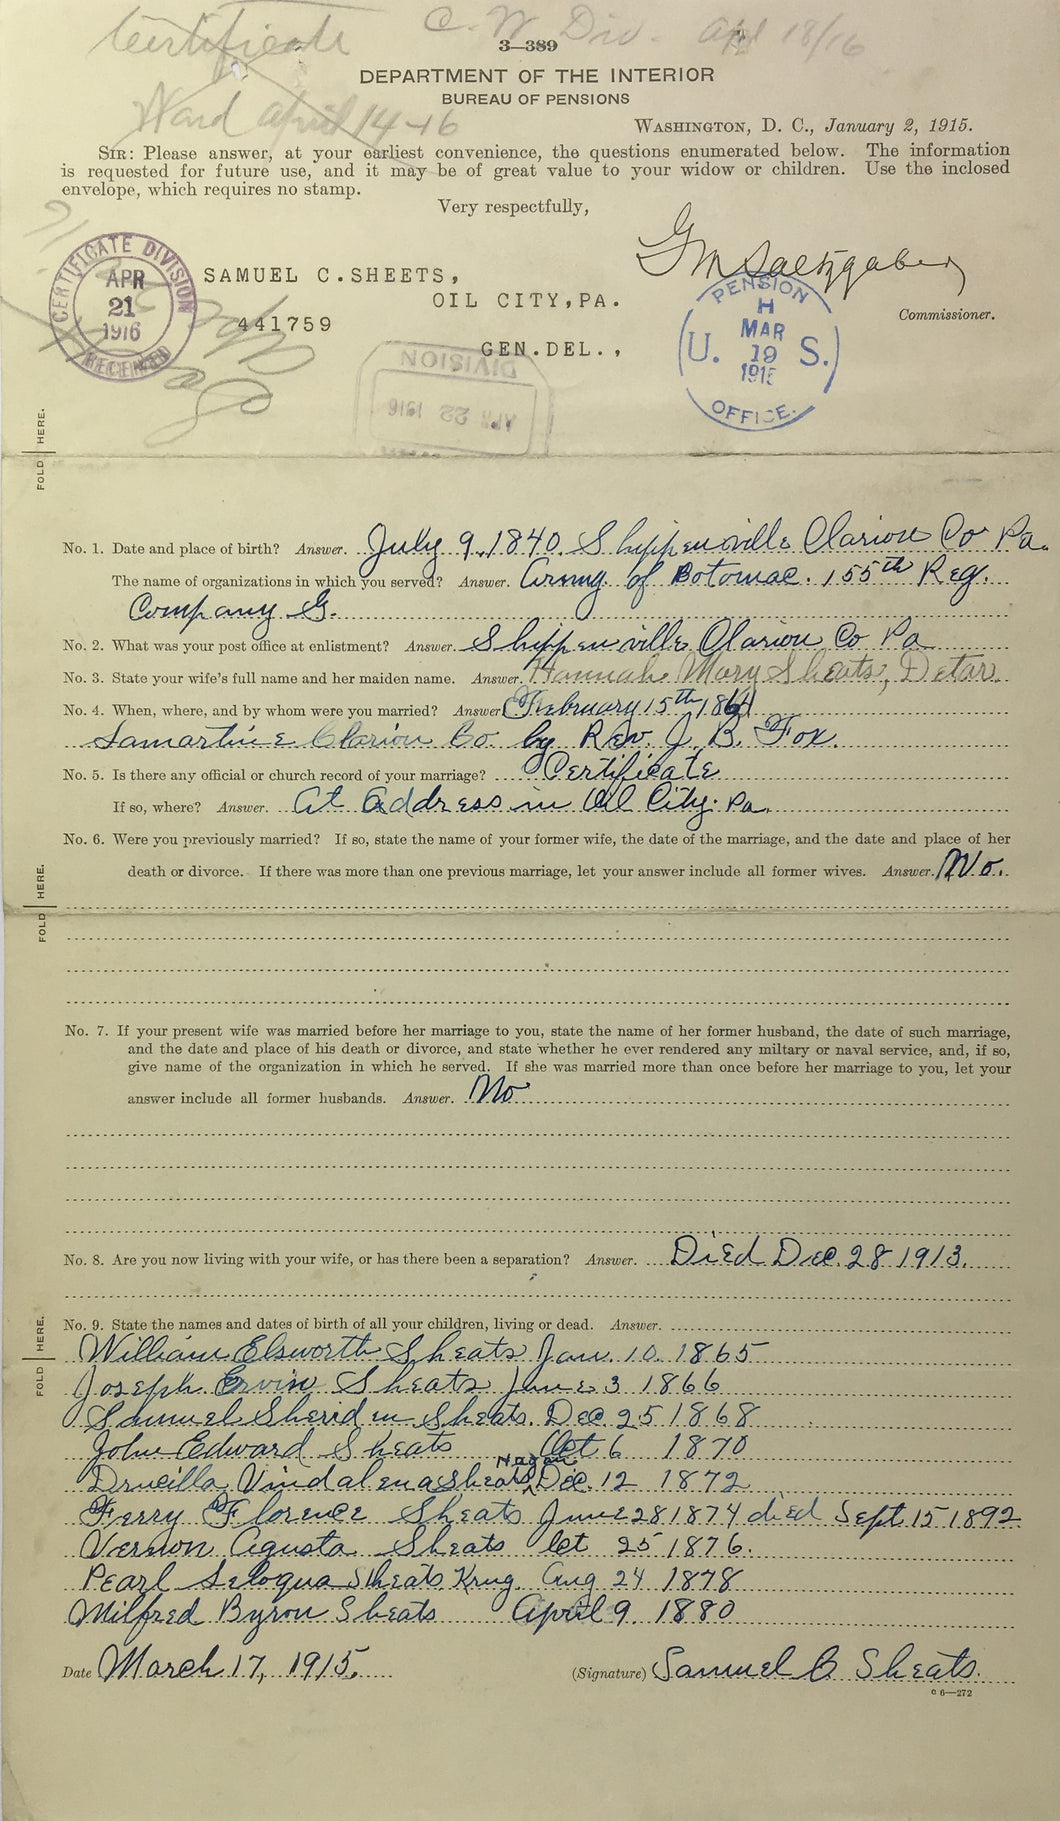 Certificate C. W Div. Apl 18/16
3—389
DEPARTMENT OF THE INTERIOR
BUREAU OF PENSIONS
Ward April 14-16
WASHINGTON, D. C., January 2, 1915.
SIR: Please answer, at your earliest convenience, the questions enumerated below. The information
is requested for future use, and it may be of great value to your widow or children. Use the inclosed
envelope, which requires no stamp.
Very respectfully,
G M Saltzgaber
Commissioner.
CERTIFICATE DIVISION
APR
21
1916
RECEIVED
SAMUEL C.SHEETS,
OIL CITY,PA.
441759
GEN.DEL.,
PENSION
H
MAR
U. 19 S.
1915
OFFICE.
DIVISION
APR 22 1916
FOLD HERE.
No. 1. Date and place of birth? Answer. July 9, 1840. Shippenville Clarion Co Pa.
The name of organizations in which you served? Answer. Army of Botomac. 155th Reg.
Company G.
No. 2. What was your post office at enlistment? Answer. Shippenville Clarion Co Pa
No. 3. State your wife's full name and her maiden name. Answer. Hannah Mary Sheats, Detar
No. 4. When, where, and by whom were you married? Answer. February 15th 1864
Samartine Clarion Co by Rev. J. B. Fox.
No. 5. Is there any official or church record of your marriage? Certificate
If so, where? Answer. At Address in Oil City. Pa.
No. 6. Were you previously married? If so, state the name of your former wife, the date of the marriage, and the date and place of her
death or divorce. If there was more than one previous marriage, let your answer include all former wives. Answer. No.
FOLD HERE.
No. 7. If your present wife was married before her marriage to you, state the name of her former husband, the date of such marriage,
and the date and place of his death or divorce, and state whether he ever rendered any miltary or naval service, and, if so,
give name of the organization in which he served. If she was married more than once before her marriage to you, let your
answer include all former husbands. Answer. No
No. 8. Are you now living with your wife, or has there been a separation? Answer. Died Dec. 28 1913.
No. 9. State the names and dates of birth of all your children, living or dead. Answer.
FOLD HERE.
William Elsworth Sheats Jan. 10. 1865
Joseph Ervin Sheats June 3 1866
Samuel Sheriden Sheats. Dec. 25 1868
John Edward Sheats Oct 6 1870
Drucilla Vindalena Sheats Dec. 12 1872
Ferry Florence Sheats June 28 1874 died Sept. 15 1892
Vernon Agusta Sheats Oct 25 1876.
Pearl Seloqua Sheats Krug. Aug 24 1878
Milfred Byron Sheats April 9 1880
Date March 17, 1915. (Signature) Samuel C Sheats.
c 6—272